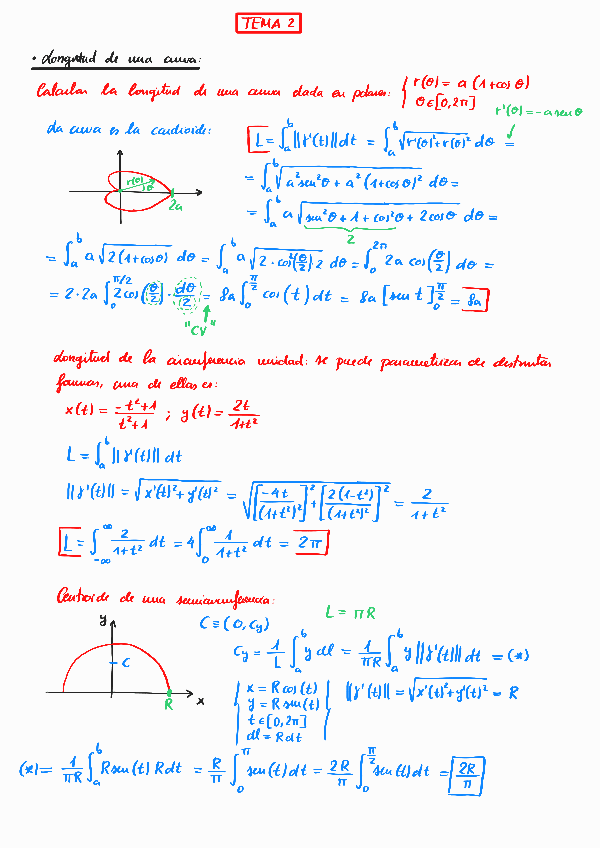 TEMA 2
· Longitud de una curva:
Calcular la longitud de una curva dada en polares: { r(θ) = a (1+cos θ)
θ∈[0,2π]
r'(θ) = -a sen θ
La curva es la cardioide: L = ∫_a^b ||γ'(t)|| dt = ∫_a^b √(r'(θ)²+r(θ)²) dθ =
= ∫_a^b √(a² sen²θ + a² (1+cos θ)²) dθ =
r(θ) θ 2a
= ∫_a^b a √(sen²θ + 1 + cos²θ + 2cos θ) dθ =
2
= ∫_a^b a √(2(1+cos θ)) dθ = ∫_a^b a √(2·cos²(θ/2) 2) dθ = ∫_0^{2π} 2a cos(θ/2) dθ =
= 2·2a ∫_0^{π/2} 2cos(θ/2) · dθ/2 = 8a ∫_0^{π/2} cos(t) dt = 8a [sen t]_0^{π/2} = 8a
"CV"
Longitud de la circunferencia unidad: se puede parametrizar de distintas
formas, una de ellas es:
x(t) = (-t²+1)/(t²+1) ; y(t) = 2t/(1+t²)
L = ∫_a^b ||γ'(t)|| dt
||γ'(t)|| = √(x'(t)²+y'(t)²) = √([-4t/(1+t²)²]² + [2(1-t²)/(1+t²)²]²) = 2/(1+t²)
L = ∫_{-∞}^{∞} 2/(1+t²) dt = 4 ∫_0^∞ 1/(1+t²) dt = 2π
Centroide de una semicircunferencia:
L = πR
y C ≡ (0, Cy)
C Cy = 1/L ∫_a^b y dl = 1/(πR) ∫_a^b y ||γ'(t)|| dt = (*)
R x
x = R cos(t) ||γ'(t)|| = √(x'(t)²+y'(t)²) = R
y = R sen(t)
t∈[0,2π]
dl = R dt
(*) = 1/(πR) ∫_a^b R sen(t) R dt = R/π ∫_0^π sen(t) dt = 2R/π ∫_0^{π/2} sen(t) dt = 2R/π